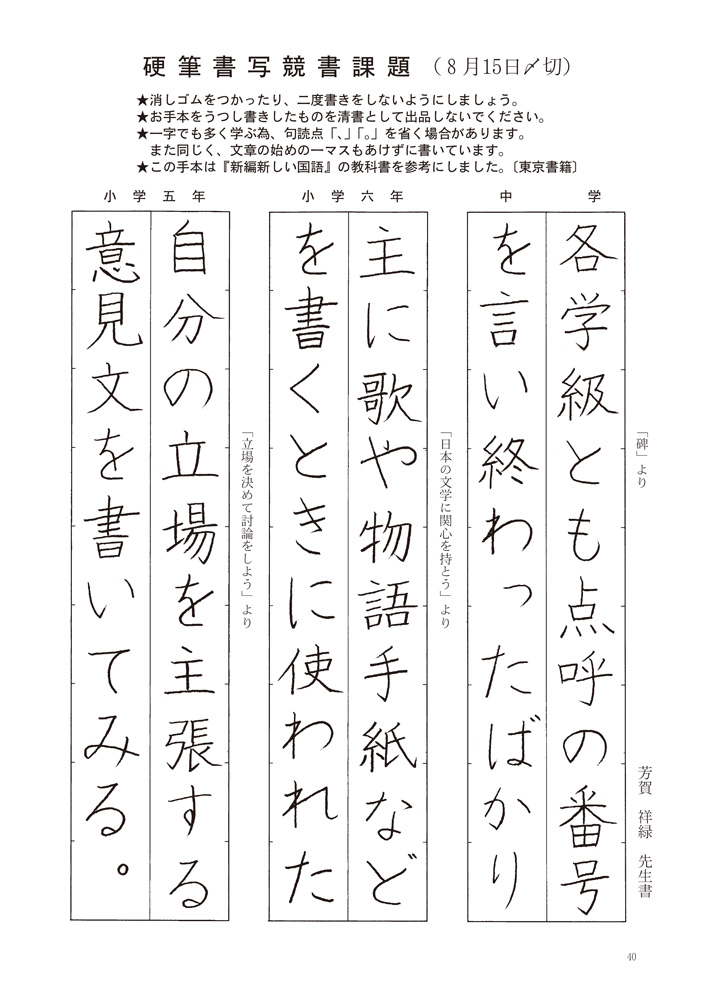 硬筆書写競書課題 （8月15日〆切）
★消しゴムをつかったり、二度書きをしないようにしましょう。
★お手本をうつし書きしたものを清書として出品しないでください。
★一字でも多く学ぶ為、句読点「、」「。」を省く場合があります。
また同じく、文章の始めの一マスもあけずに書いています。
★この手本は『新編新しい国語』の教科書を参考にしました。〔東京書籍〕
中学
「碑」より
芳賀 祥緑 先生書
各学級とも点呼の番号
を言い終わったばかり
小学六年
「日本の文学に関心を持とう」より
主に歌や物語手紙など
を書くときに使われた
小学五年
「立場を決めて討論をしよう」より
自分の立場を主張する
意見文を書いてみる。
40